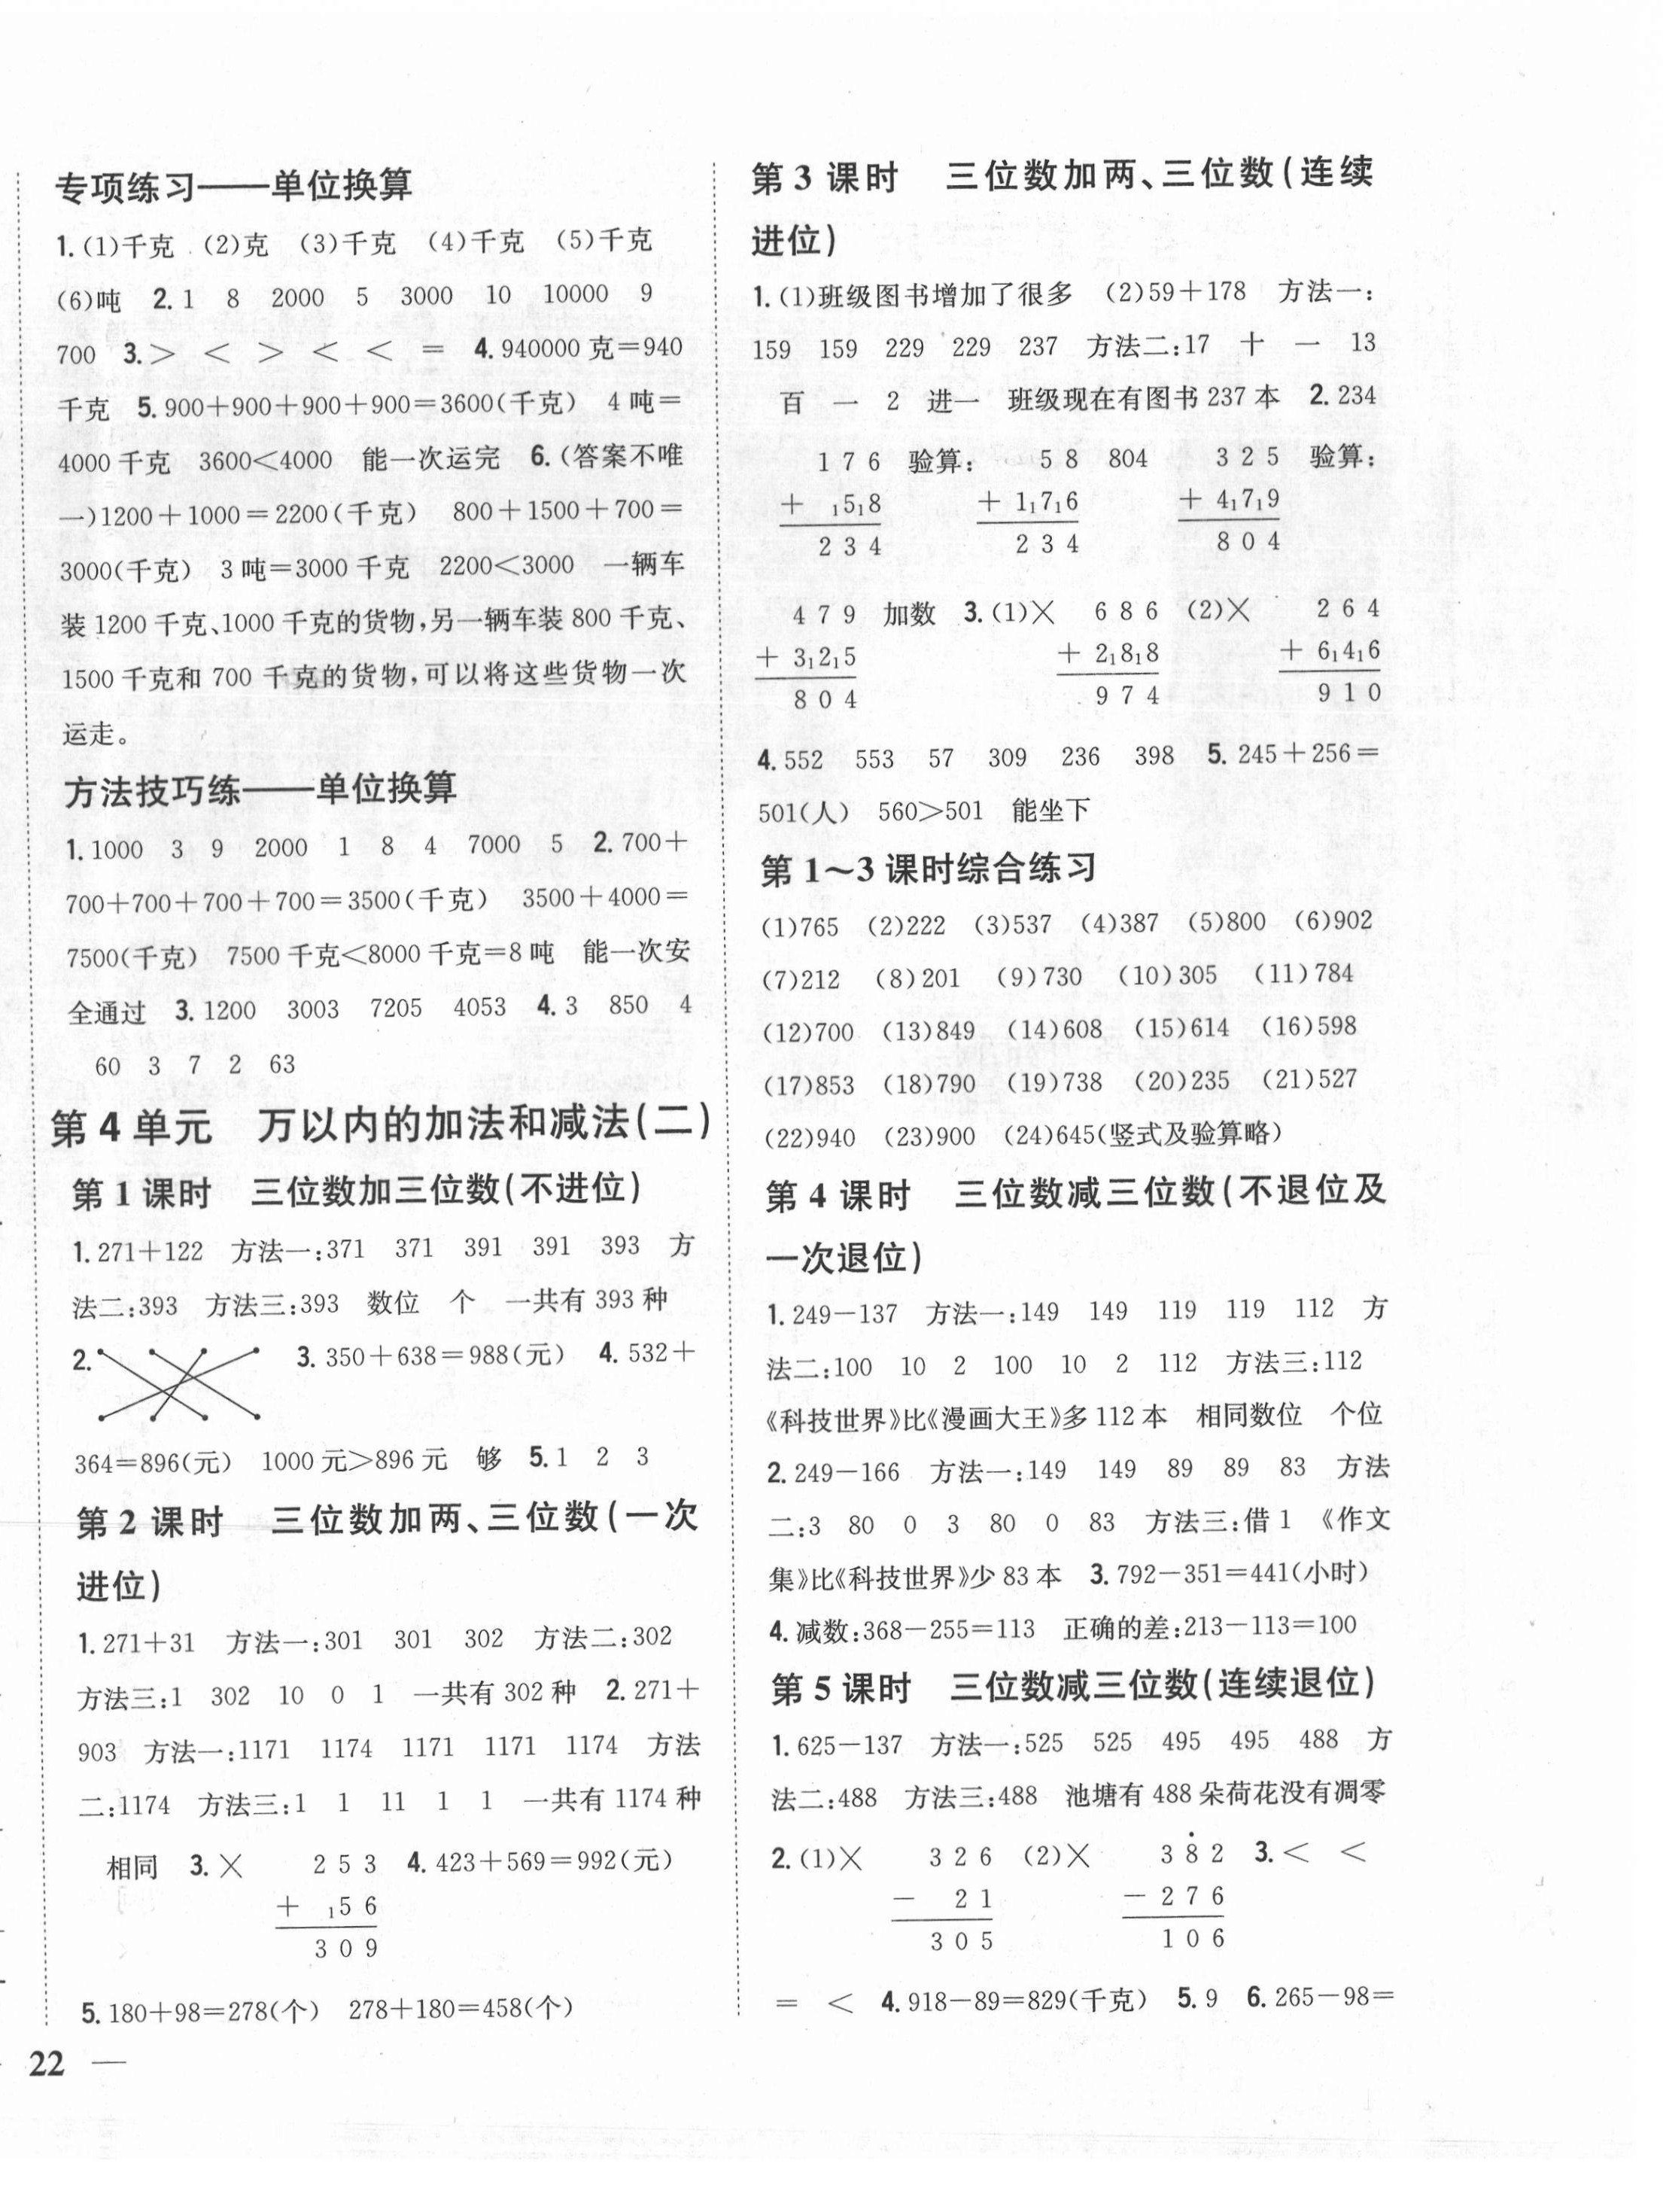 专项练习——单位换算
1.(1)千克 (2)克 (3)千克 (4)千克 (5)千克
(6)吨 2.1 8 2000 5 3000 10 10000 9
700 3.> < > < < = 4.940000克=940
千克 5.900+900+900+900=3600(千克) 4吨=
4000千克 3600<4000 能一次运完 6.(答案不唯
一)1200+1000=2200(千克) 800+1500+700=
3000(千克) 3吨=3000千克 2200<3000 一辆车
装1200千克、1000千克的货物,另一辆车装800千克、
1500千克和700千克的货物,可以将这些货物一次
运走。
方法技巧练——单位换算
1.1000 3 9 2000 1 8 4 7000 5 2.700+
700+700+700+700=3500(千克) 3500+4000=
7500(千克) 7500千克<8000千克=8吨 能一次安
全通过 3.1200 3003 7205 4053 4.3 850 4
60 3 7 2 63
第4单元 万以内的加法和减法(二)
第1课时 三位数加三位数(不进位)
1.271+122 方法一:371 371 391 391 393 方
法二:393 方法三:393 数位 个 一共有393种
2. 3.350+638=988(元) 4.532+
364=896(元) 1000元>896元 够 5.1 2 3
第2课时 三位数加两、三位数(一次
进位)
1.271+31 方法一:301 301 302 方法二:302
方法三:1 302 10 0 1 一共有302种 2.271+
903 方法一:1171 1174 1171 1171 1174 方法
二:1174 方法三:1 1 11 1 1 一共有1174种
相同 3.× 2 5 3 4.423+569=992(元)
+ ₁5 6
3 0 9
5.180+98=278(个) 278+180=458(个)
22 —
第3课时 三位数加两、三位数(连续
进位)
1.(1)班级图书增加了很多 (2)59+178 方法一:
159 159 229 229 237 方法二:17 十 一 13
百 一 2 进一 班级现在有图书237本 2.234
1 7 6 验算: 5 8 804 3 2 5 验算:
+ ₁5₁8 + 1₁7₁6 + 4₁7₁9
2 3 4 2 3 4 8 0 4
4 7 9 加数 3.(1)× 6 8 6 (2)× 2 6 4
+ 3₁2₁5 + 2₁8₁8 + 6₁4₁6
8 0 4 9 7 4 9 1 0
4.552 553 57 309 236 398 5.245+256=
501(人) 560>501 能坐下
第1~3课时综合练习
(1)765 (2)222 (3)537 (4)387 (5)800 (6)902
(7)212 (8)201 (9)730 (10)305 (11)784
(12)700 (13)849 (14)608 (15)614 (16)598
(17)853 (18)790 (19)738 (20)235 (21)527
(22)940 (23)900 (24)645(竖式及验算略)
第4课时 三位数减三位数(不退位及
一次退位)
1.249-137 方法一:149 149 119 119 112 方
法二:100 10 2 100 10 2 112 方法三:112
《科技世界》比《漫画大王》多112本 相同数位 个位
2.249-166 方法一:149 149 89 89 83 方法
二:3 80 0 3 80 0 83 方法三:借1 《作文
集》比《科技世界》少83本 3.792-351=441(小时)
4.减数:368-255=113 正确的差:213-113=100
第5课时 三位数减三位数(连续退位)
1.625-137 方法一:525 525 495 495 488 方
法二:488 方法三:488 池塘有488朵荷花没有凋零
2.(1)× 3 2 6 (2)× 3 8̇ 2 3.< <
- 2 1 - 2 7 6
3 0 5 1 0 6
= < 4.918-89=829(千克) 5.9 6.265-98=